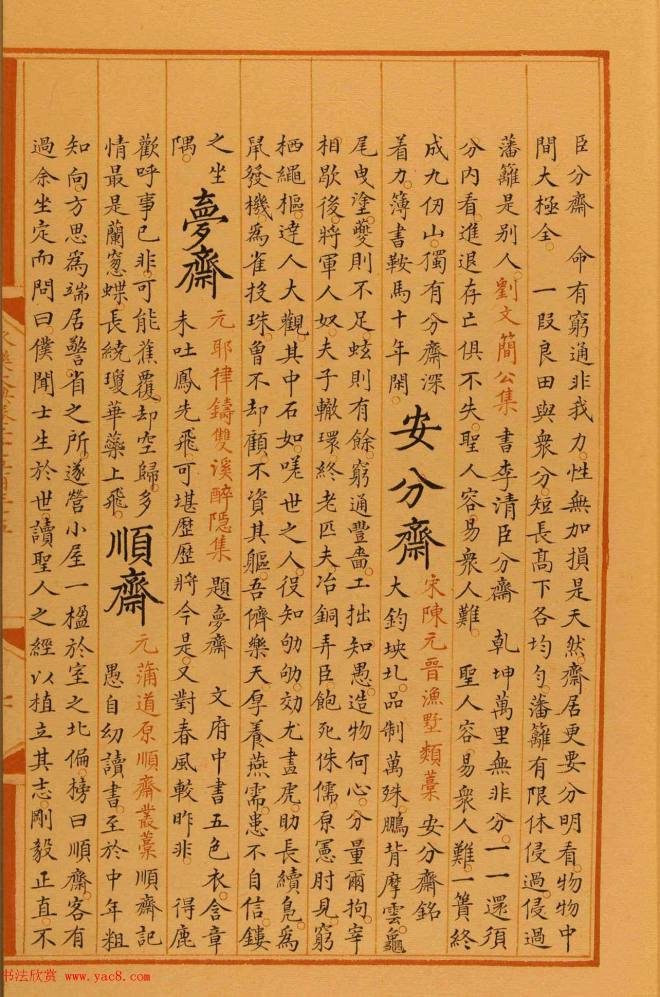 臣分齋　命有窮通非我力。性無加損是天然。齋居更要分明看。物物中
間大極全。　一段良田與衆分。短長髙下各均勻。藩籬有限休侵過。侵過
藩籬是别人。劉文簡公集　書李清臣分齋　乾坤萬里無非分。一一還須
分内看。進退存亡俱不失。聖人容易衆人難。　聖人容易衆人難。一簣終
成九仞山。獨有分齋深
着力。簿書鞍馬十年閑。
安分齋
宋陳元晉漁墅類藁　安分齋銘
大鈞坱圠。品制萬殊。鵬背摩雲。龜
尾曳塗。夔則不足。蚿則有餘。窮通豐嗇。工拙知愚。造物何心。分量爾拘。宰
相歇後。將軍人奴。夫子轍環。終老匹夫。冶銅弄臣。飽死侏儒。原憲肘見。窮
栖繩樞。達人大觀。其中石如。嗟世之人。役知劬劬。效尤畫虎。助長續鳧。為
鼠發機。為雀投珠。曾不却顧。不資其軀。吾儕樂天。厚養燕需。患不自信。鏤
之坐
隅。
夢齋
元耶律鑄雙溪醉隱集　題夢齋　文府中書五色衣。含章
未吐鳳先飛。可堪歷歷將今是。又對春風較昨非。　得鹿
歡呼事已非。可能蕉覆却空歸。多
情最是蘭窻蝶。長繞瓊華藥上飛。
順齋
元蒲道原順齋叢藁　順齋記
愚自幼讀書。至於中年粗
知向方。思為端居警省之所。遂營小屋一楹於室之北偏。榜曰順齋。客有
過余坐定而問曰。僕聞士生於世。讀聖人之經以植立其志。剛毅正直不
书法欣赏 www.yac8.com